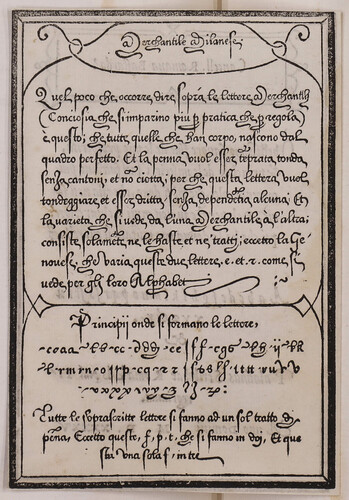 Merchantile Milanese.
Quel poco che, occorre dire sopra, le lettere Merchantili
(Conciosia che si imparino piu p pratica che p regola)
è questo; che tutte quelle che han corpo, nascono dal
quadro perfetto. Et la penna vuol esser teprata tonda
senza cantoni, et nõ ciotta; per che questa lettera vuol
tondeggiare et esser dritta senza dependetia alcuna; Et
la varieta che si vede da l'una Merchantile à l'altra;
consiste solamete ne le haste et ne tratti; eccetto la Ge
novese, che varia queste due lettere, e. et. r. come si
vede per gli loro Alphabeti
Principii onde si formano le lettere,
Tutte le soprascritte lettere si fanno ad un sol tratto di
pena, Eccetto queste, f. p. t, che si fanno in doi, Et que
sta una sola f. in tre